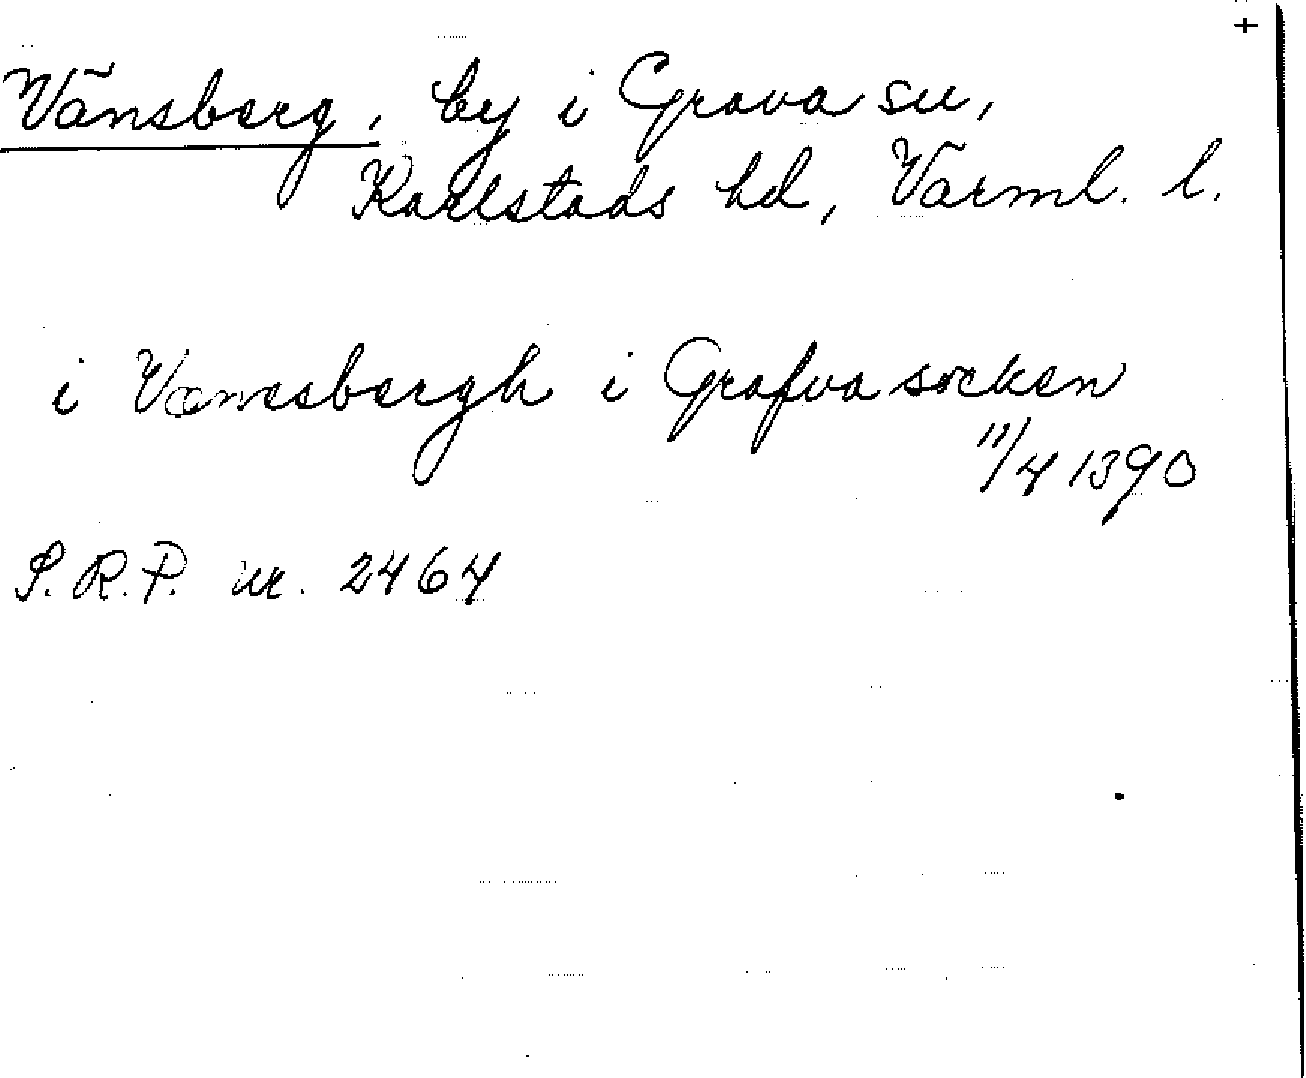 +
Vänsberg, by i Grava sn,
Karlstads hd, Värml. l.
i Vænesbergh i Grafva socken
11/4 1390
S.R.P. nr. 2464